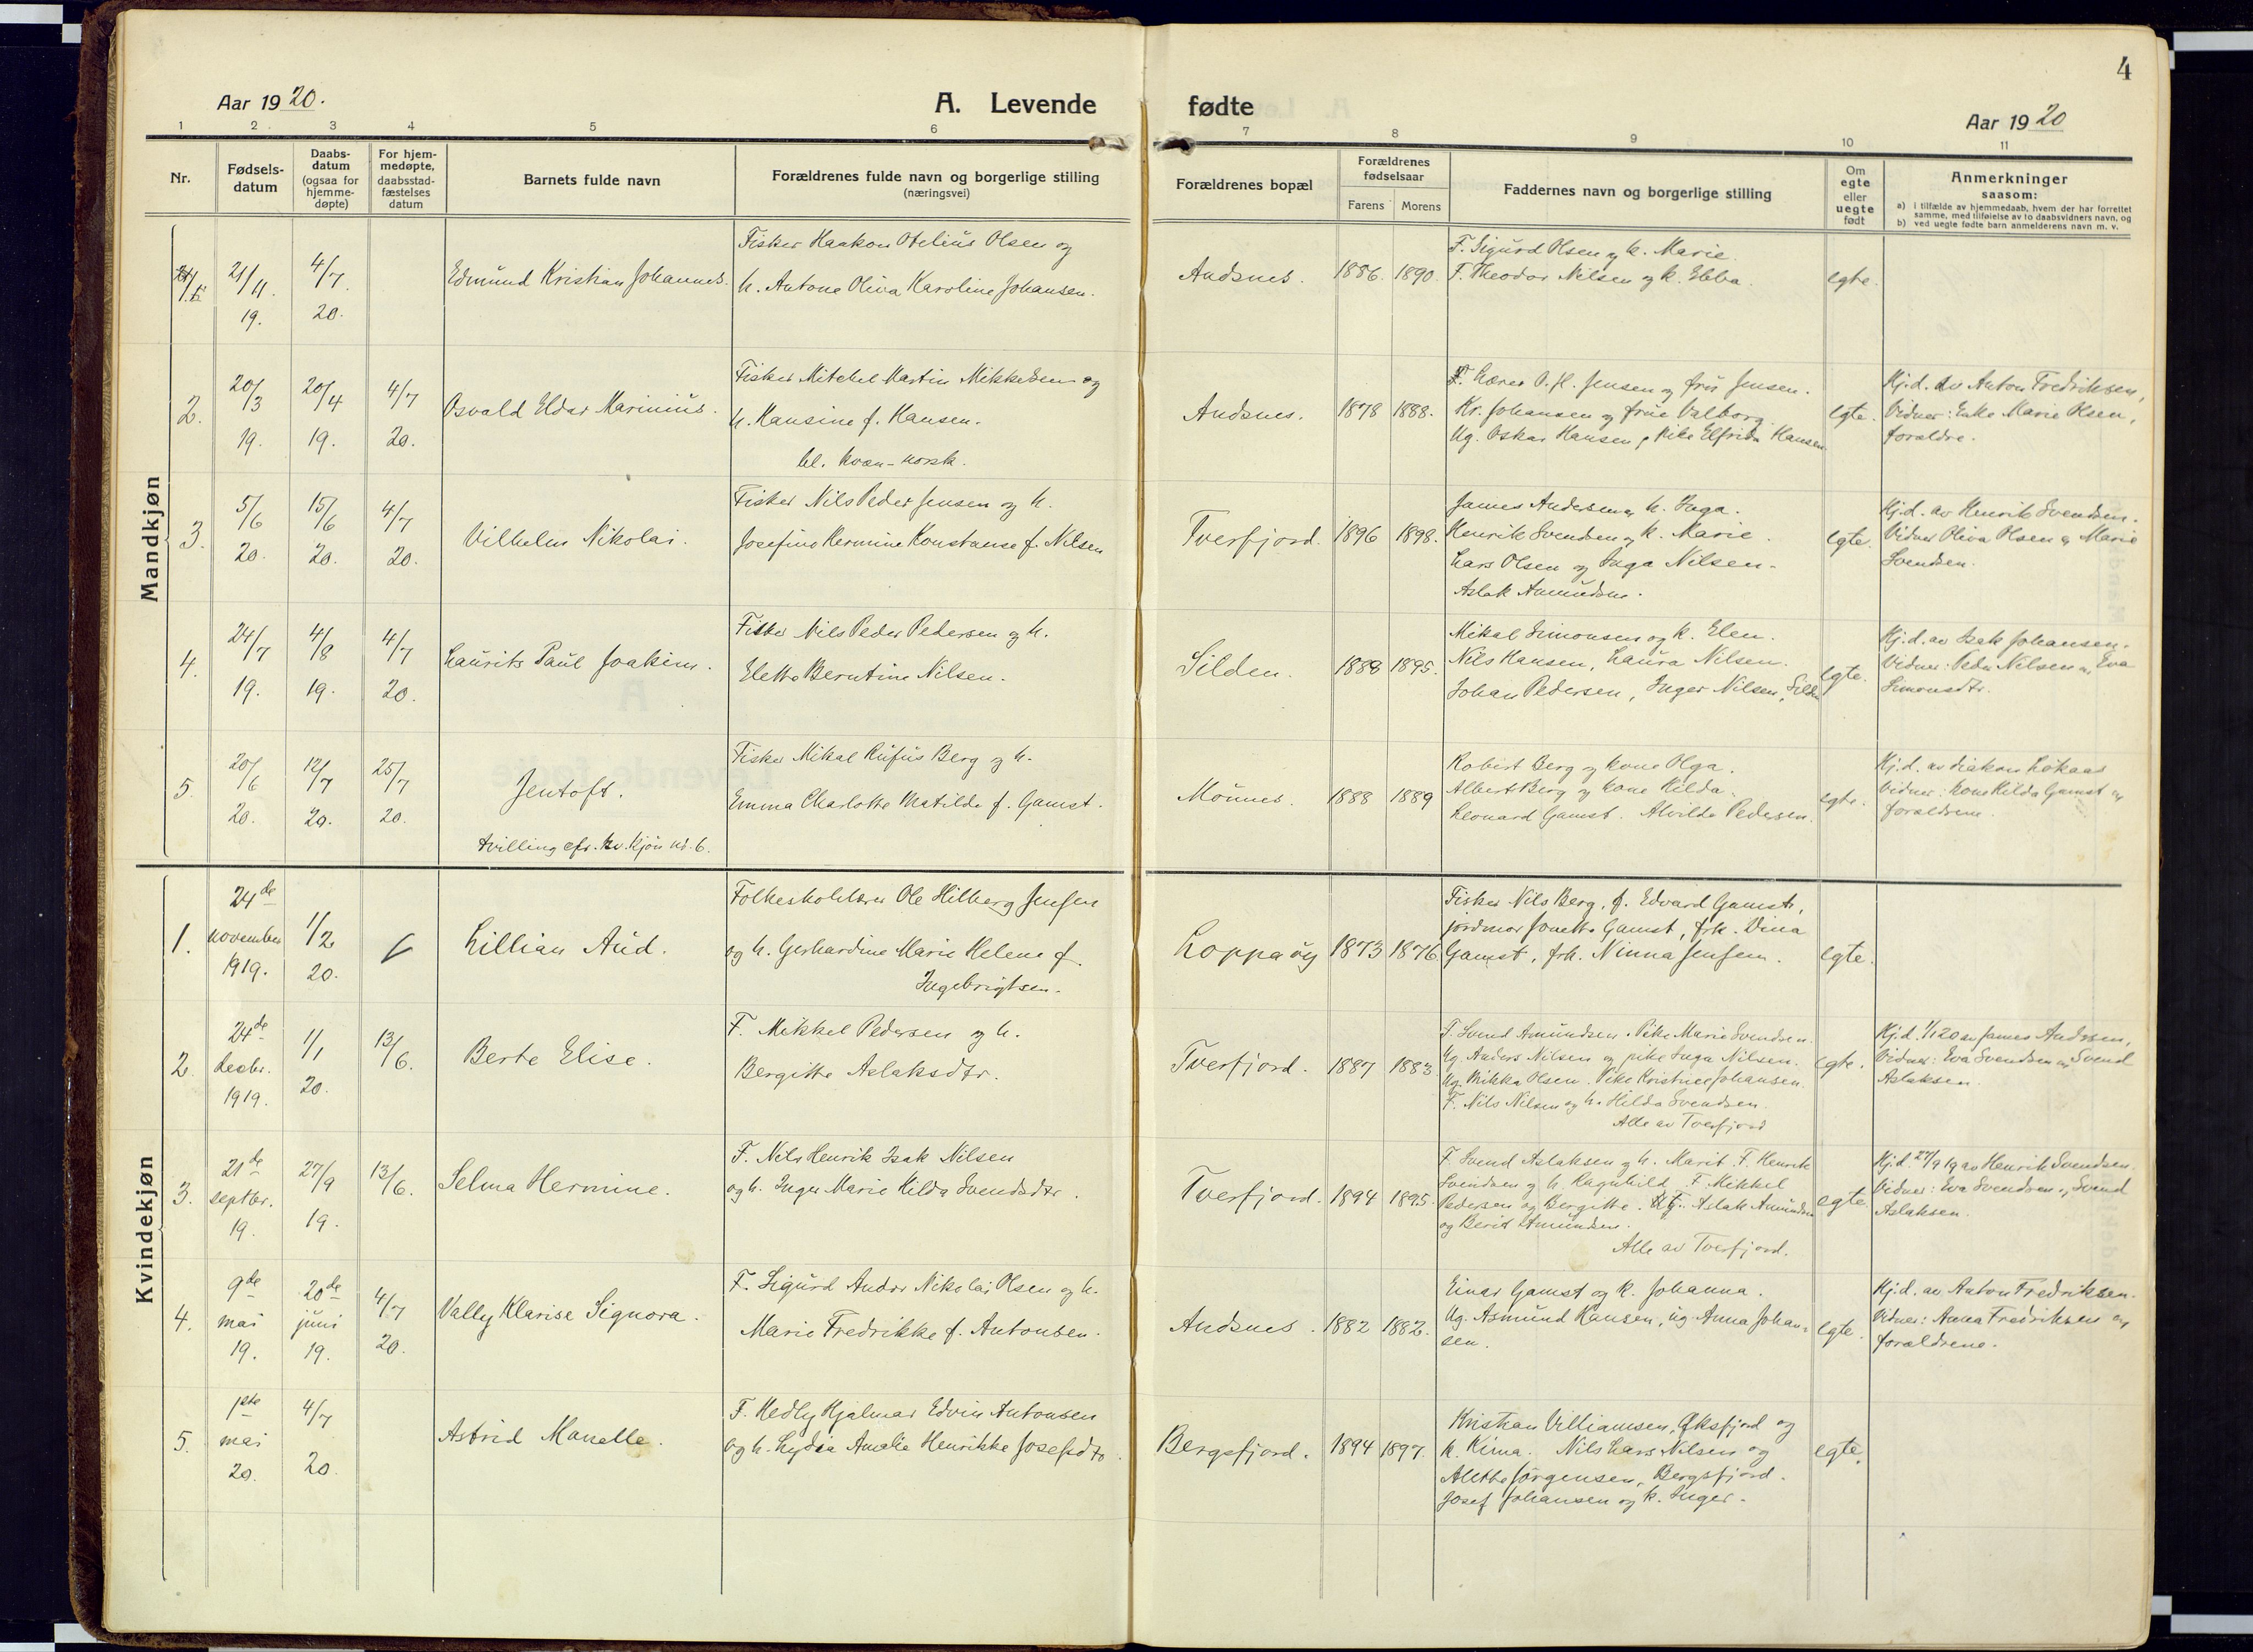 4
Aar 1920.
A. Levende
fødte
Aar 1920
1 2 3 4 5 6 7 8 9 10 11
Nr.
Fødsels-
datum
Daabs-
datum
(ogsaa for
hjemme-
døpte)
For hjem-
medøpte,
daabsstad-
fæstelses
datum
Barnets fulde navn
Forældrenes fulde navn og borgerlige stilling
(næringsvei)
Forældrenes bopæl
Forældrenes
fødselsaar
Farens Morens
Faddernes navn og borgerlige stilling
Om
egte
eller
uegte
født
Anmerkninger
saasom:
a) i tilfælde av hjemmedaab, hvem der har forrettet
samme, med tilføielse av to daabsvidners navn, og
b) ved uegte fødte barn anmelderens navn m. v.
Mandkjøn
1.
21/4
19.
4/7
20.
Edmund Kristian Johannes.
Fisker Haakon Otelius Olsen og
h. Antone Oliva Karoline Johansen.
Andsnes.
1886. 1890.
F. Sigurd Olsen og k. Marie.
F. Theodor Nilsen og k. Ebba.
egte.
2.
20/3
19.
20/4
19.
4/7
20.
Osvald Eldar Marinius.
Fisker Mitchel Martin Mikkelsen og
h. Hansine f. Hansen.
bl. kvæn-norsk.
Andsnes.
1878 1888.
Lærer O. H. Jensen og fru Jensen.
Kr. Johansen og frue Valborg.
Ug. Oskar Hansen, pike Elfrida Hansen
egte.
Hj.d. av Anton Fredriksen,
Vidner: Enke Marie Olsen,
forældre.
3.
5/6
20.
15/6
20.
4/7
20.
Vilhelm Nikolai.
Fisker Nils Peder Jensen og h.
Josefine Hermine Konstanse f. Nilsen
Tverfjord.
1896 1898.
James Andersen og k. Inga.
Henrik Svendsen og k. Marie.
Lars Olsen og Inga Nilsen.
Aslak Amundsen.
egte.
Hj.d. av Henrik Svendsen.
Vidner Oliva Olsen og Marie
Svendsen.
4.
24/7
19.
4/8
19.
4/7
20.
Laurits Paul Joakim.
Fisker Nils Peder Pedersen og h.
Elette Berntine Nilsen.
Silden.
1888 1895.
Mikal Simonsen og k. Elen.
Nils Hansen, Laura Nilsen.
Johan Pedersen, Inger Nilsen, Silden
egte.
Hj.d. av Isak Johansen.
Vidner: Peder Nilsen og Eva
Simonsdtr.
5.
20/6
20.
12/7
20.
25/7
20.
Jentoft.
tvilling cfr. kv. kjøn no. 6.
Fisker Mikal Rufus Berg og h.
Emma Charlotte Matilde f. Gamst.
1888 1889
Robert Berg og kone Olga.
Albert Berg og kone Hilda.
Leonard Gamst. Alvilde Pedersen.
egte.
Hj.d. av diakon Løkaas
Vidner: kone Hilda Gamst og
forældrene.
Kvindekjøn
1.
24de
november
1919.
1/2
20.
Lillian Aud.
Folkeskolelærer Ole Hilberg Jensen
og h. Gerhardine Marie Helene f.
Ingebrigtsen.
Loppaøy
1873 1876
Fisker Nils Berg, f. Edvard Gamst,
jordmor Jonette Gamst, frk. Dina
Gamst, frk. Ninna Jensen.
egte.
2.
24de
decbr.
1919.
1/1
20.
13/6.
Berte Elise.
F. Mikkel Pedersen og h.
Bergitte Aslaksdtr.
Tverfjord.
1887 1883
F. Svend Amundsen. Pike Marie Svendsen.
Ug. Anders Nilsen og pike Inga Nilsen.
Ug. Mikka Olsen. Pike Kristine Johansen.
F. Nils Nilsen og h. Hilda Svendsen.
Alle av Tverfjord
egte.
Hj.d. 1/1 20 av James Andersen,
Vidner: Eva Svendsen og Svend
Aslaksen.
3.
21de
septbr.
19.
27/9
19.
13/6.
Selma Hermine.
F. Nils Henrik Isak Nilsen
og h. Inger Marie Hilda Svendsdtr.
Tverfjord.
1894 1895
F. Svend Aslaksen og h. Marit. F. Henrik
Svendsen og h. Ragnhild. F. Mikkel
Pedersen og Bergitte. Aslak Amundsen
og Berit Amundsen.
Alle av Tverfjord.
egte.
Hj.d. 27/9 19 av Henrik Svendsen.
Vidner: Eva Svendsen og Svend
Aslaksen.
4.
9de
mai
19.
20de
juni
19.
4/7
20.
Vally Klarise Signora.
F. Sigurd Andor Nikolai Olsen og h.
Marie Fredrikke f. Antonsen.
Andsnes.
1882 1882.
Einar Gamst og k. Johanna.
Ug. Asmund Hansen, ug. Anna Johan-
sen.
egte.
Hj.d. av Anton Fredriksen.
Vidner: Anna Fredriksen og
forældrene.
5.
1ste
mai
20.
4/7
20.
Astrid Manelle.
F. Hedly Hjalmar Edvin Antonsen
og h. Lydia Amalie Henrikke Josefsdtr.
Bergsfjord.
1894 1897.
Kristian Villiamsen, Øksfjord og
k. Kima. Nils Lars Nilsen og
Alette Jørgensen, Bergsfjord.
Josef Johansen og k. Inger.
egte.